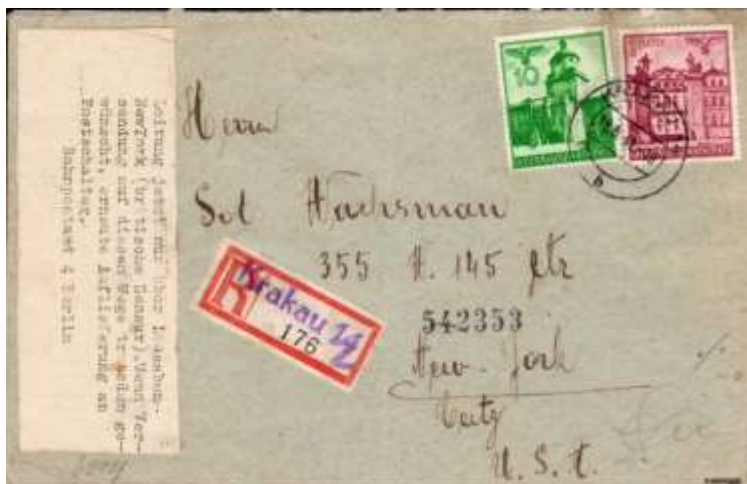 Leitung jetzt nur über Lissabon-
NewYork (britische Zensur).Wenn Ver-
sendung auf diesem Wege ge-
wünscht, erneute Auflieferung am
Postschalter.
Bahnpostamt 4 Berlin
10
Herrn
Sol Wachsman
355 W. 145 Str
R
Krakau 14
176
542353
New-York
City
U. S. A.